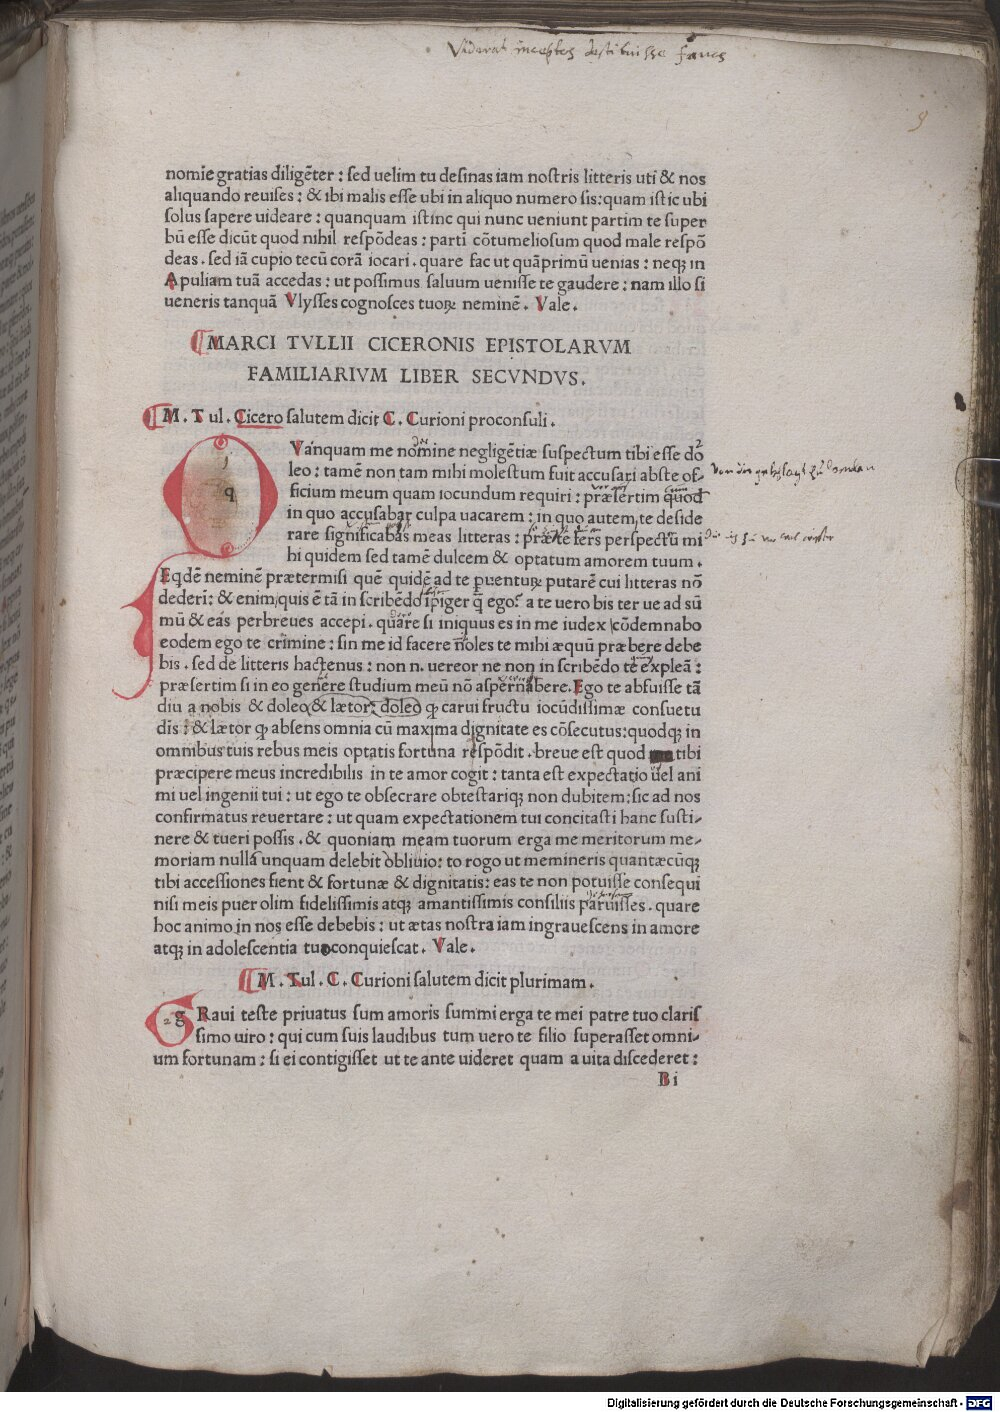 Viderat inceptos destituisse
nomīe gratias diligēter : sed uelim tu desinas iam nostris litteris uti & nos
aliquando reuises : & ibi malis esse ubi in aliquo numero sis: quam istic ubi
solus sapere uideare : quanquam istinc qui nunc ueniunt partim te super
bū esse dicūt quod nihil respōdeas : parti cōtumeliosum quod male respō
deas . sed iā cupio tecū corā iocari . quare fac ut quāprimū uenias : neqꝫ in
Apuliam tuā accedas : ut possimus saluum uenisse te gaudere : nam illo si
ueneris tanquā Vlysses cognosces tuoꝝ neminē . Vale .
MARCI TVLLII CICERONIS EPISTOLARVM
FAMILIARIVM LIBER SECVNDVS .
M . Tul . Cicero salutem dicit C. Curioni proconsuli .
q Vanquam me nomine negligētiæ suspectum tibi esse do
leo : tamē non tam mihi molestum fuit accusari abste of-
ficium meum quam iocundum requiri : præsertim quod
in quo accusabar culpa uacarem : in quo autem te deside
rare significabas meas litteras : præ te fers perspectū mi
hi quidem sed tamē dulcem & optatum amorem tuum .
Eqdē neminē prætermisi quē quidē ad te ꝑuentuꝝ putarē cui litteras nō
dederī: & enim quis ē tā in scribēdo īpiger q̄ ego? a te uero bis ter ue ad sū
mū & eas perbreues accepi . quare si iniquus es in me iudex cōdemnabo
eodem ego te crimine : sin me id facere noles te mihi æquū præbere debe
bis . sed de litteris hactenus : non n. uereor ne non in scribēdo te expleā :
præsertim si in eo genere studium meū nō aspernabere. Ego te abfuisse tā
diu a nobis & doleo & lætor: doleo ꝙ carui fructu iocūdissimæ consuetu
dīs : & lætor ꝙ absens omnia cū maxima dignitate es cōsecutus: quodqꝫ in
omnibus tuis rebus meis optatis fortuna respōdit . breue est quod tibi
præcipere meus incredibilis in te amor cogit : tanta est expectatio uel ani
mi uel ingenii tui : ut ego te obsecrare obtestariqꝫ non dubitem: sic ad nos
confirmatus reuertare : ut quam expectationem tui concitasti hanc susti-
nere & tueri possis . & quoniam meam tuorum erga me meritorum me-
moriam nulla unquam delebit obliuio: to rogo ut memineris quantæcūqꝫ
tibi accessiones fient & fortunæ & dignitatis: eas te non potuisse consequi
nisi meis puer olim fidelissimis atqꝫ amantissimis consiliis paruisses . quare
hoc animo in nos esse debebis : ut ætas nostra iam ingrauescens in amore
atqꝫ in adolescentia tua conquiescat . Vale .
M . Tul . C . Curioni salutem dicit plurimam .
g Raui teste priuatus sum amoris summi erga te mei patre tuo claris
simo uiro : qui cum suis laudibus tum uero te filio superasset omni-
um fortunam : si ei contigisset ut te ante uideret quam a uita discederet :
B i
Digitalisierung gefördert durch die Deutsche Forschungsgemeinschaft - DFG